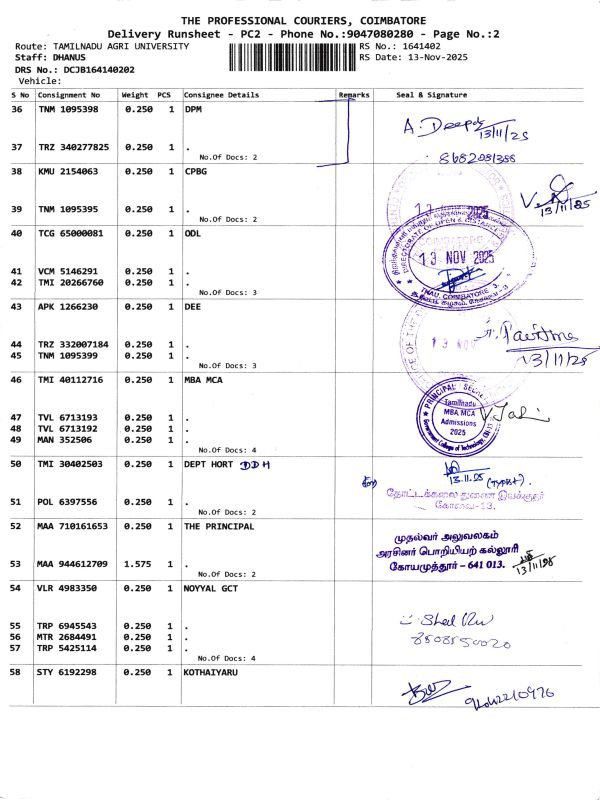 THE PROFESSIONAL COURIERS, COIMBATORE
Delivery Runsheet - PC2 - Phone No.:9047080280 - Page No.:2
Route: TAMILNADU AGRI UNIVERSITY RS No.: 1641402
Staff: DHANUS RS Date: 13-Nov-2025
DRS No.: DCJB164140202
Vehicle:
S No Consignment No Weight PCS Consignee Details Remarks Seal & Signature
36 TNM 1095398 0.250 1 DPM
A. Deepa
13/11/25
37 TRZ 340277825 0.250 1 .
No.Of Docs: 2
38 KMU 2154063 0.250 1 CPBG
13/11/25
39 TNM 1095395 0.250 1 .
No.Of Docs: 2
40 TCG 65000081 0.250 1 ODL
DIRECTORATE OF OPEN & DISTANCE
13 NOV 2025
TNAU, COIMBATORE-3.
41 VCM 5146291 0.250 1 .
42 TMI 20266760 0.250 1 .
No.Of Docs: 3
43 APK 1266230 0.250 1 DEE
13 NOV
13/11/25
44 TRZ 332007184 0.250 1 .
45 TNM 1095399 0.250 1 .
No.Of Docs: 3
46 TMI 40112716 0.250 1 MBA MCA
Tamilnadu
MBA MCA
Admissions
2025
Government College of Technology, CBE-13
47 TVL 6713193 0.250 1 .
48 TVL 6713192 0.250 1 .
49 MAN 352506 0.250 1 .
No.Of Docs: 4
50 TMI 30402503 0.250 1 DEPT HORT DDH
13.11.25 (TYPIST).
தோட்டக்கலை துணை இயக்குநர்
கோவை-13.
51 POL 6397556 0.250 1 .
No.Of Docs: 2
52 MAA 710161653 0.250 1 THE PRINCIPAL
முதல்வர் அலுவலகம்
அரசினர் பொறியியற் கல்லூரி
கோயமுத்தூர் – 641 013.
13/11/25
53 MAA 944612709 1.575 1 .
No.Of Docs: 2
54 VLR 4983350 0.250 1 NOYYAL GCT
55 TRP 6945543 0.250 1 .
56 MTR 2684491 0.250 1 .
57 TRP 5425114 0.250 1 .
No.Of Docs: 4
58 STY 6192298 0.250 1 KOTHAIYARU